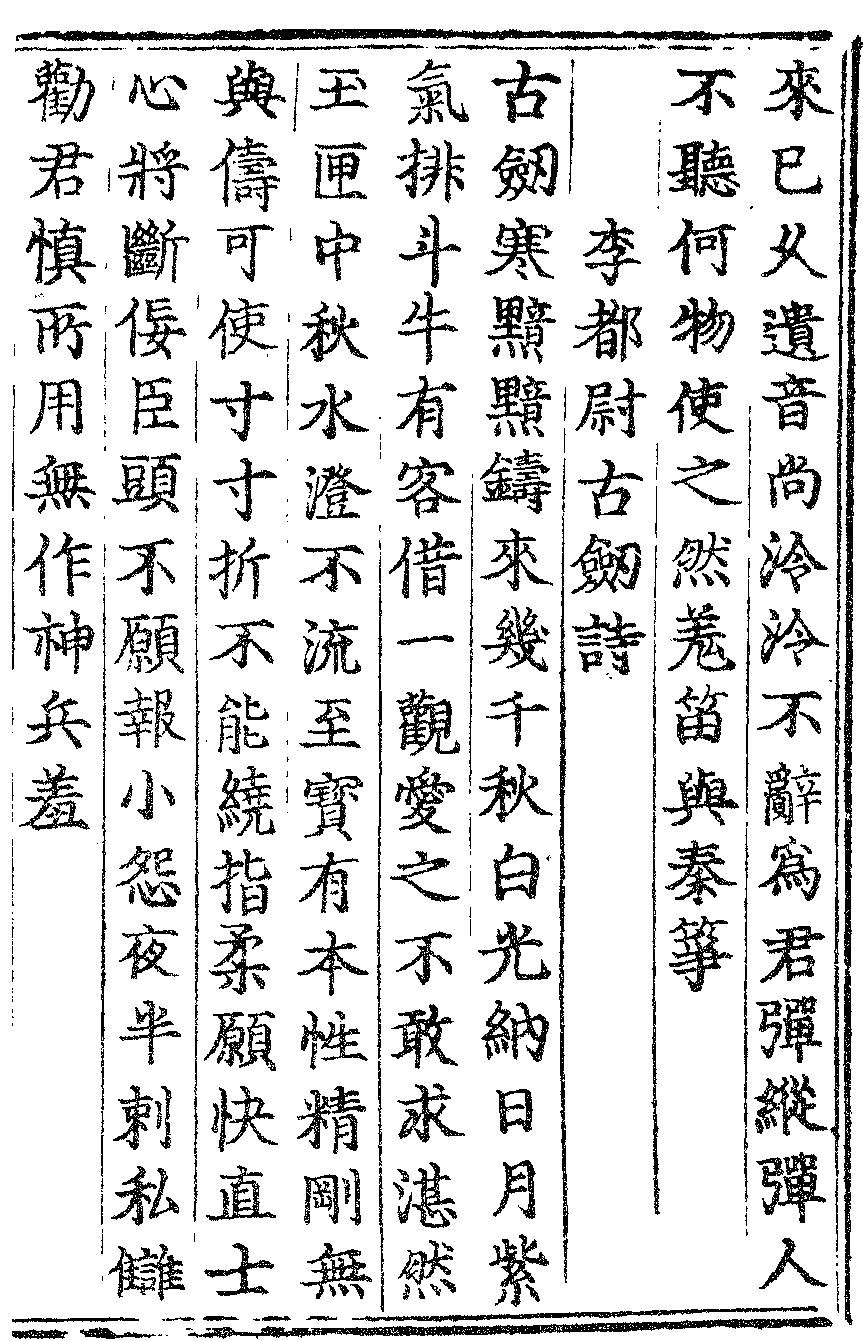 來已久遺音尚泠泠不辭爲君彈縱彈人
不聽何物使之然羗笛與秦箏
李都尉古劒詩
古劒寒黯黯鑄來幾千秋白光納日月紫
氣排斗牛有客借一觀愛之不敢求湛然
玉匣中秋水澄不流至寶有本性精剛無
與儔可使寸寸折不能繞指柔願快直士
心將斷佞臣頭不願報小怨夜半刺私讎
勸君慎所用無作神兵羞